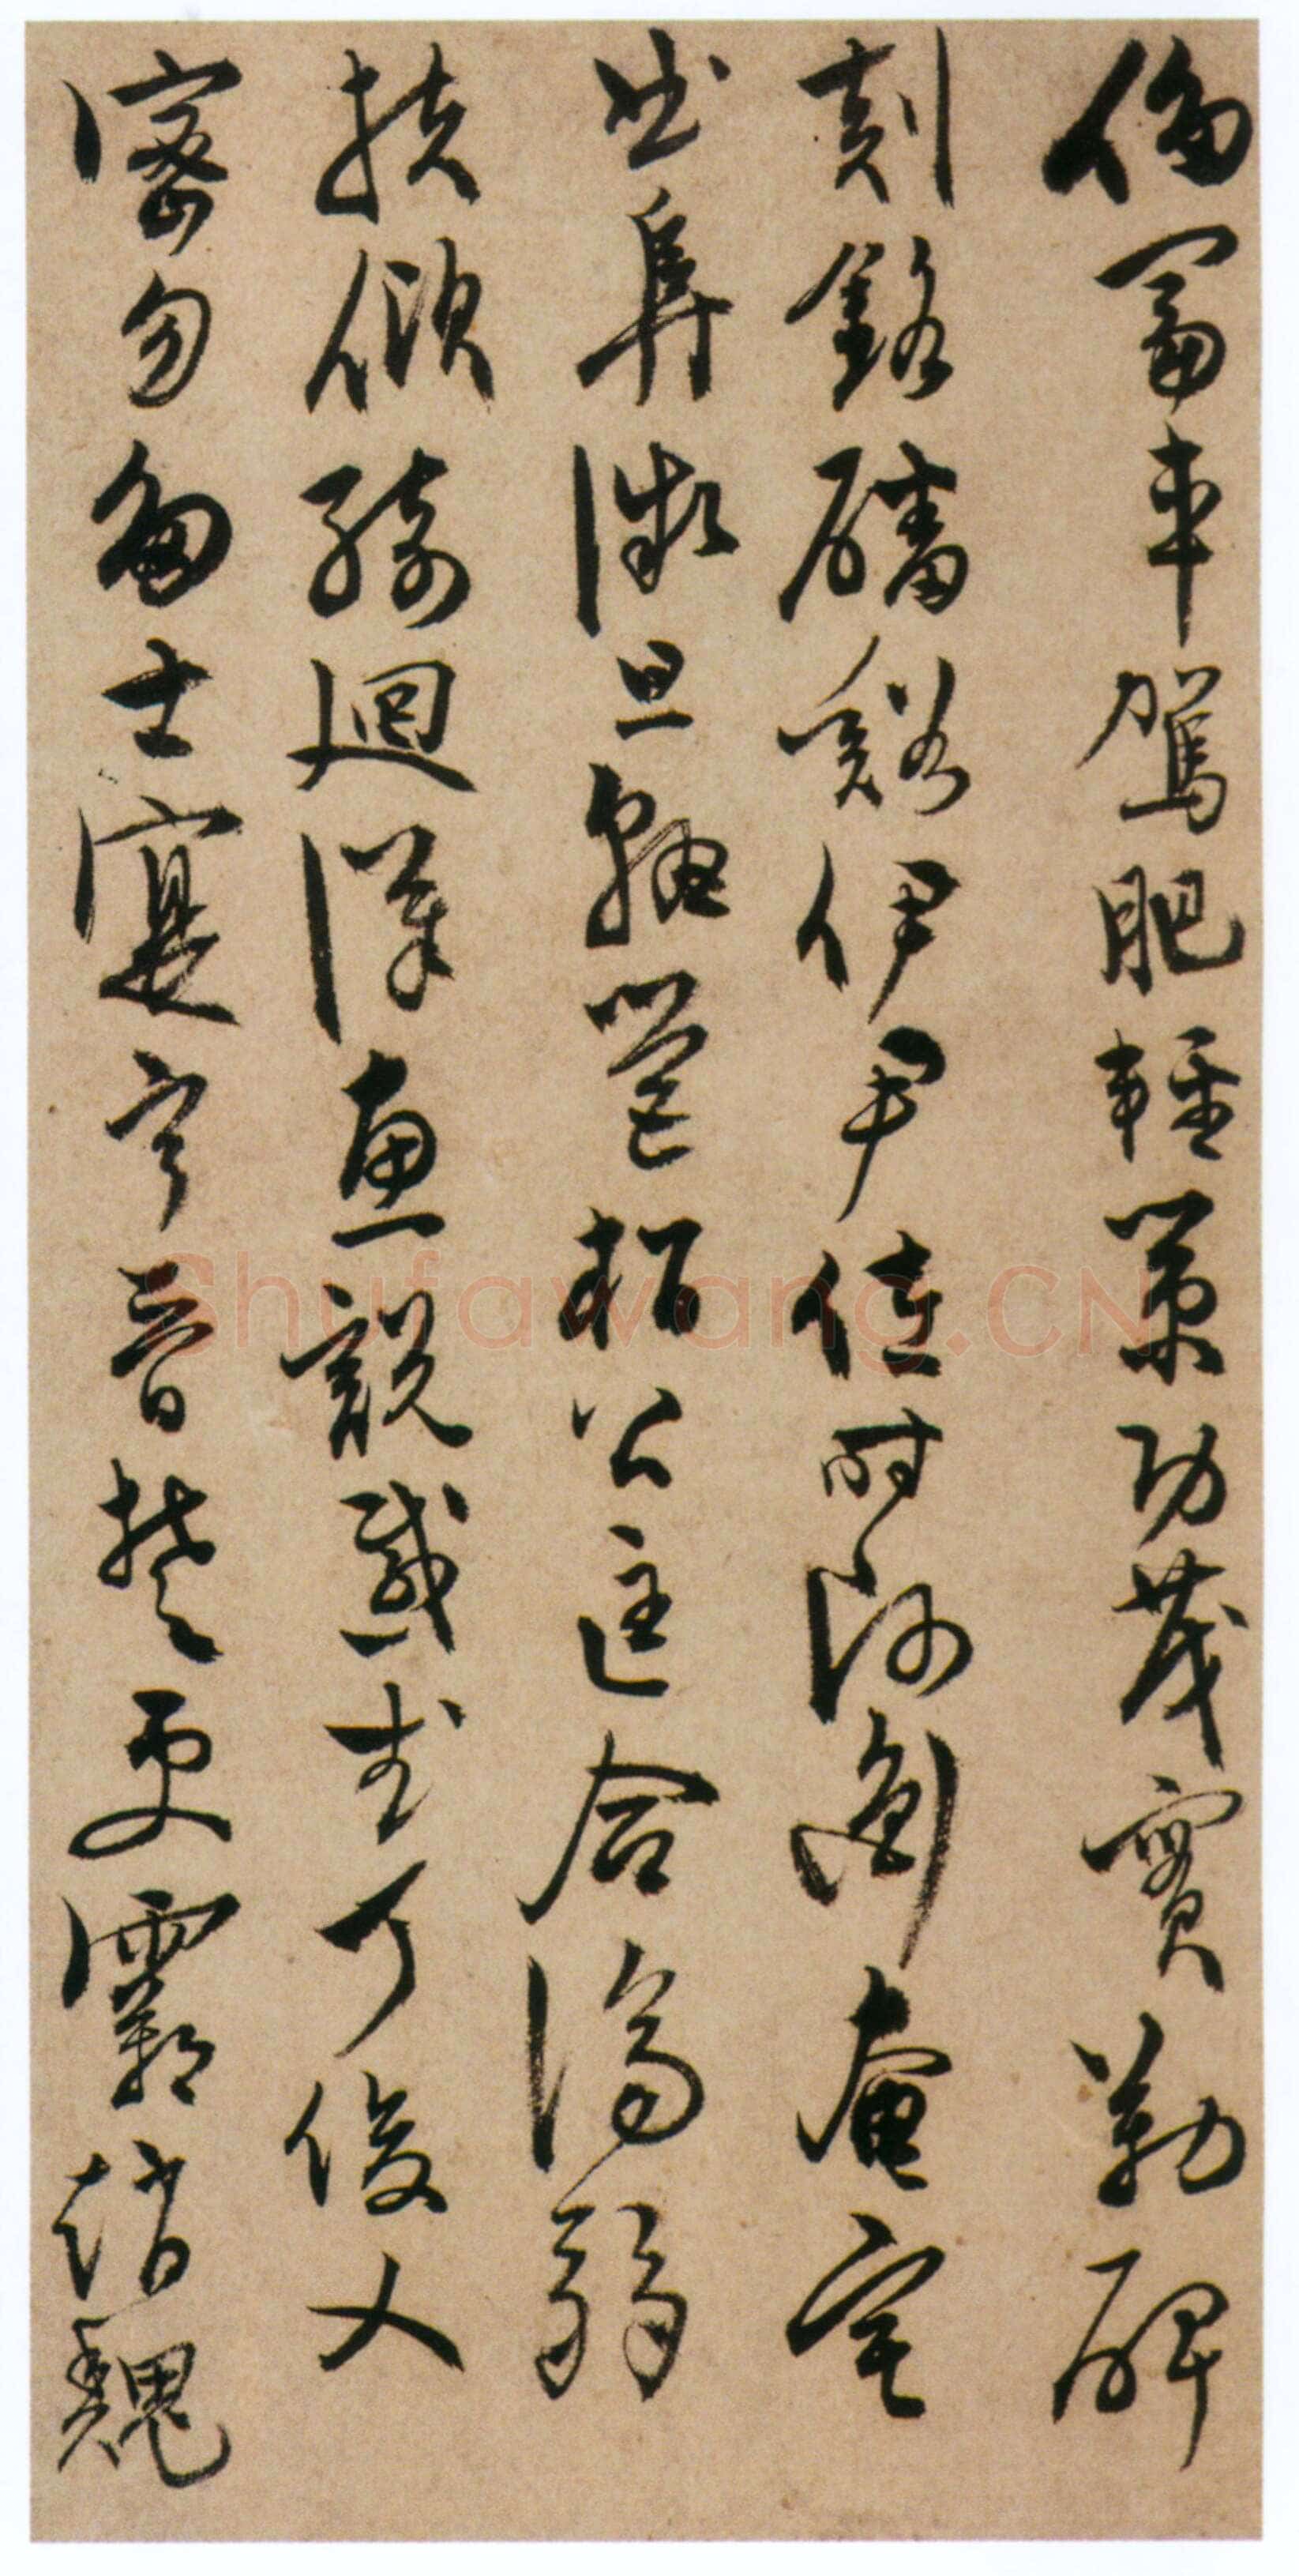 侈富車駕肥輕策功茂實勒碑
刻銘磻谿伊尹佐時阿衡奄宅
曲阜微旦孰營桓公匡合濟弱
扶傾綺迴漢惠說感武丁俊乂
密勿多士寔寧晉楚更霸趙魏
Shufawang.CN